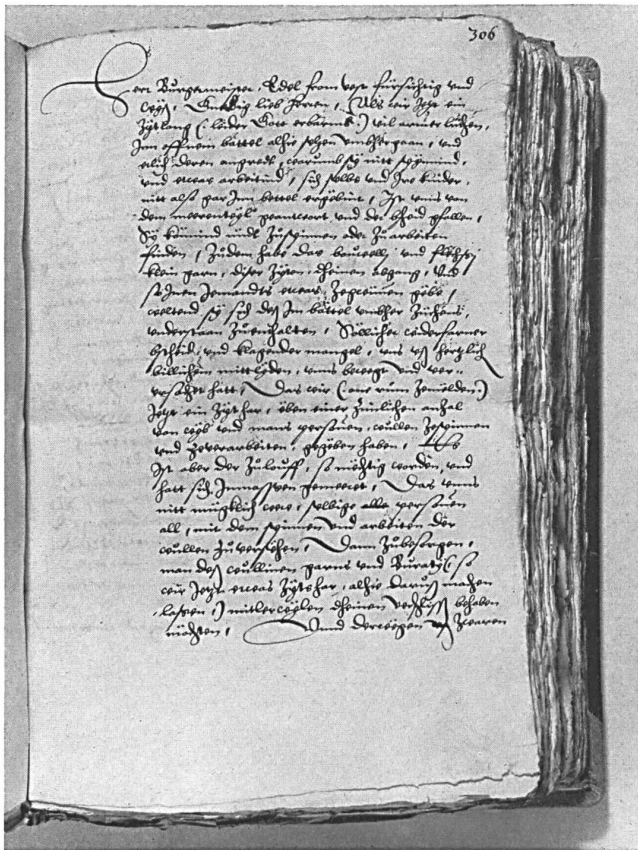 306
Herr Burgermeister, Edel from vest fürsichtig und
wyß, Gnedig lieb Herren, Als wir Jetz ein
Zytlang (: leider Gott erbarms :) vil armer lüthen,
Im offnem bättel alhie sehen umbher gaan, und
ettlich deren angredt, warumb sy nitt spynnind,
und etwas arbeitind, sich selbs und Ire kinder,
nitt alß gar Im bettel ergebint, Ist unns von
dem meerentheyl geantwort und der bscheid gfallen,
Sy könnind nüdt Zuspinnen oder Zu arbeiten
finden, Zudem habe das bauwelly und
klein garn, diser Zyten, dheinen abgang, Und
so Inen Jemandts etwas Zegewünnen gebe,
weltend sy sich deß Im bättel umbher Züchens,
understaan Zuenthalten, Söllicher
bscheid, und klagender mangel, uns uß hertzlich
billichem mittlyden, unns bewegt und ver-
ursachet hatt, Das wir (: one rum Zemelden :)
Jetzt ein Zythar, eben einer Zimlichen anzal
von wyb und mans personen, wullen Zespinnen
und Zeverarbeiten, gegeben haben,
Ist aber der Zulouff, so mächtig worden, und
hatt sich Inmasssen gemeeret, Das unns
nitt mügklich were, sellbige alle personen
all, mit dem spinnen und arbeiten der
wullen Zuversehen, Dann Zubesorgen,
man deß wullinen garns und Buratys (: so
wir Jetzt etwas Zythar, alhie daruß machen
lassen :) mitlerwylen dheinen verschlyß gehaben
möchten, Unnd derwegen Zwaren